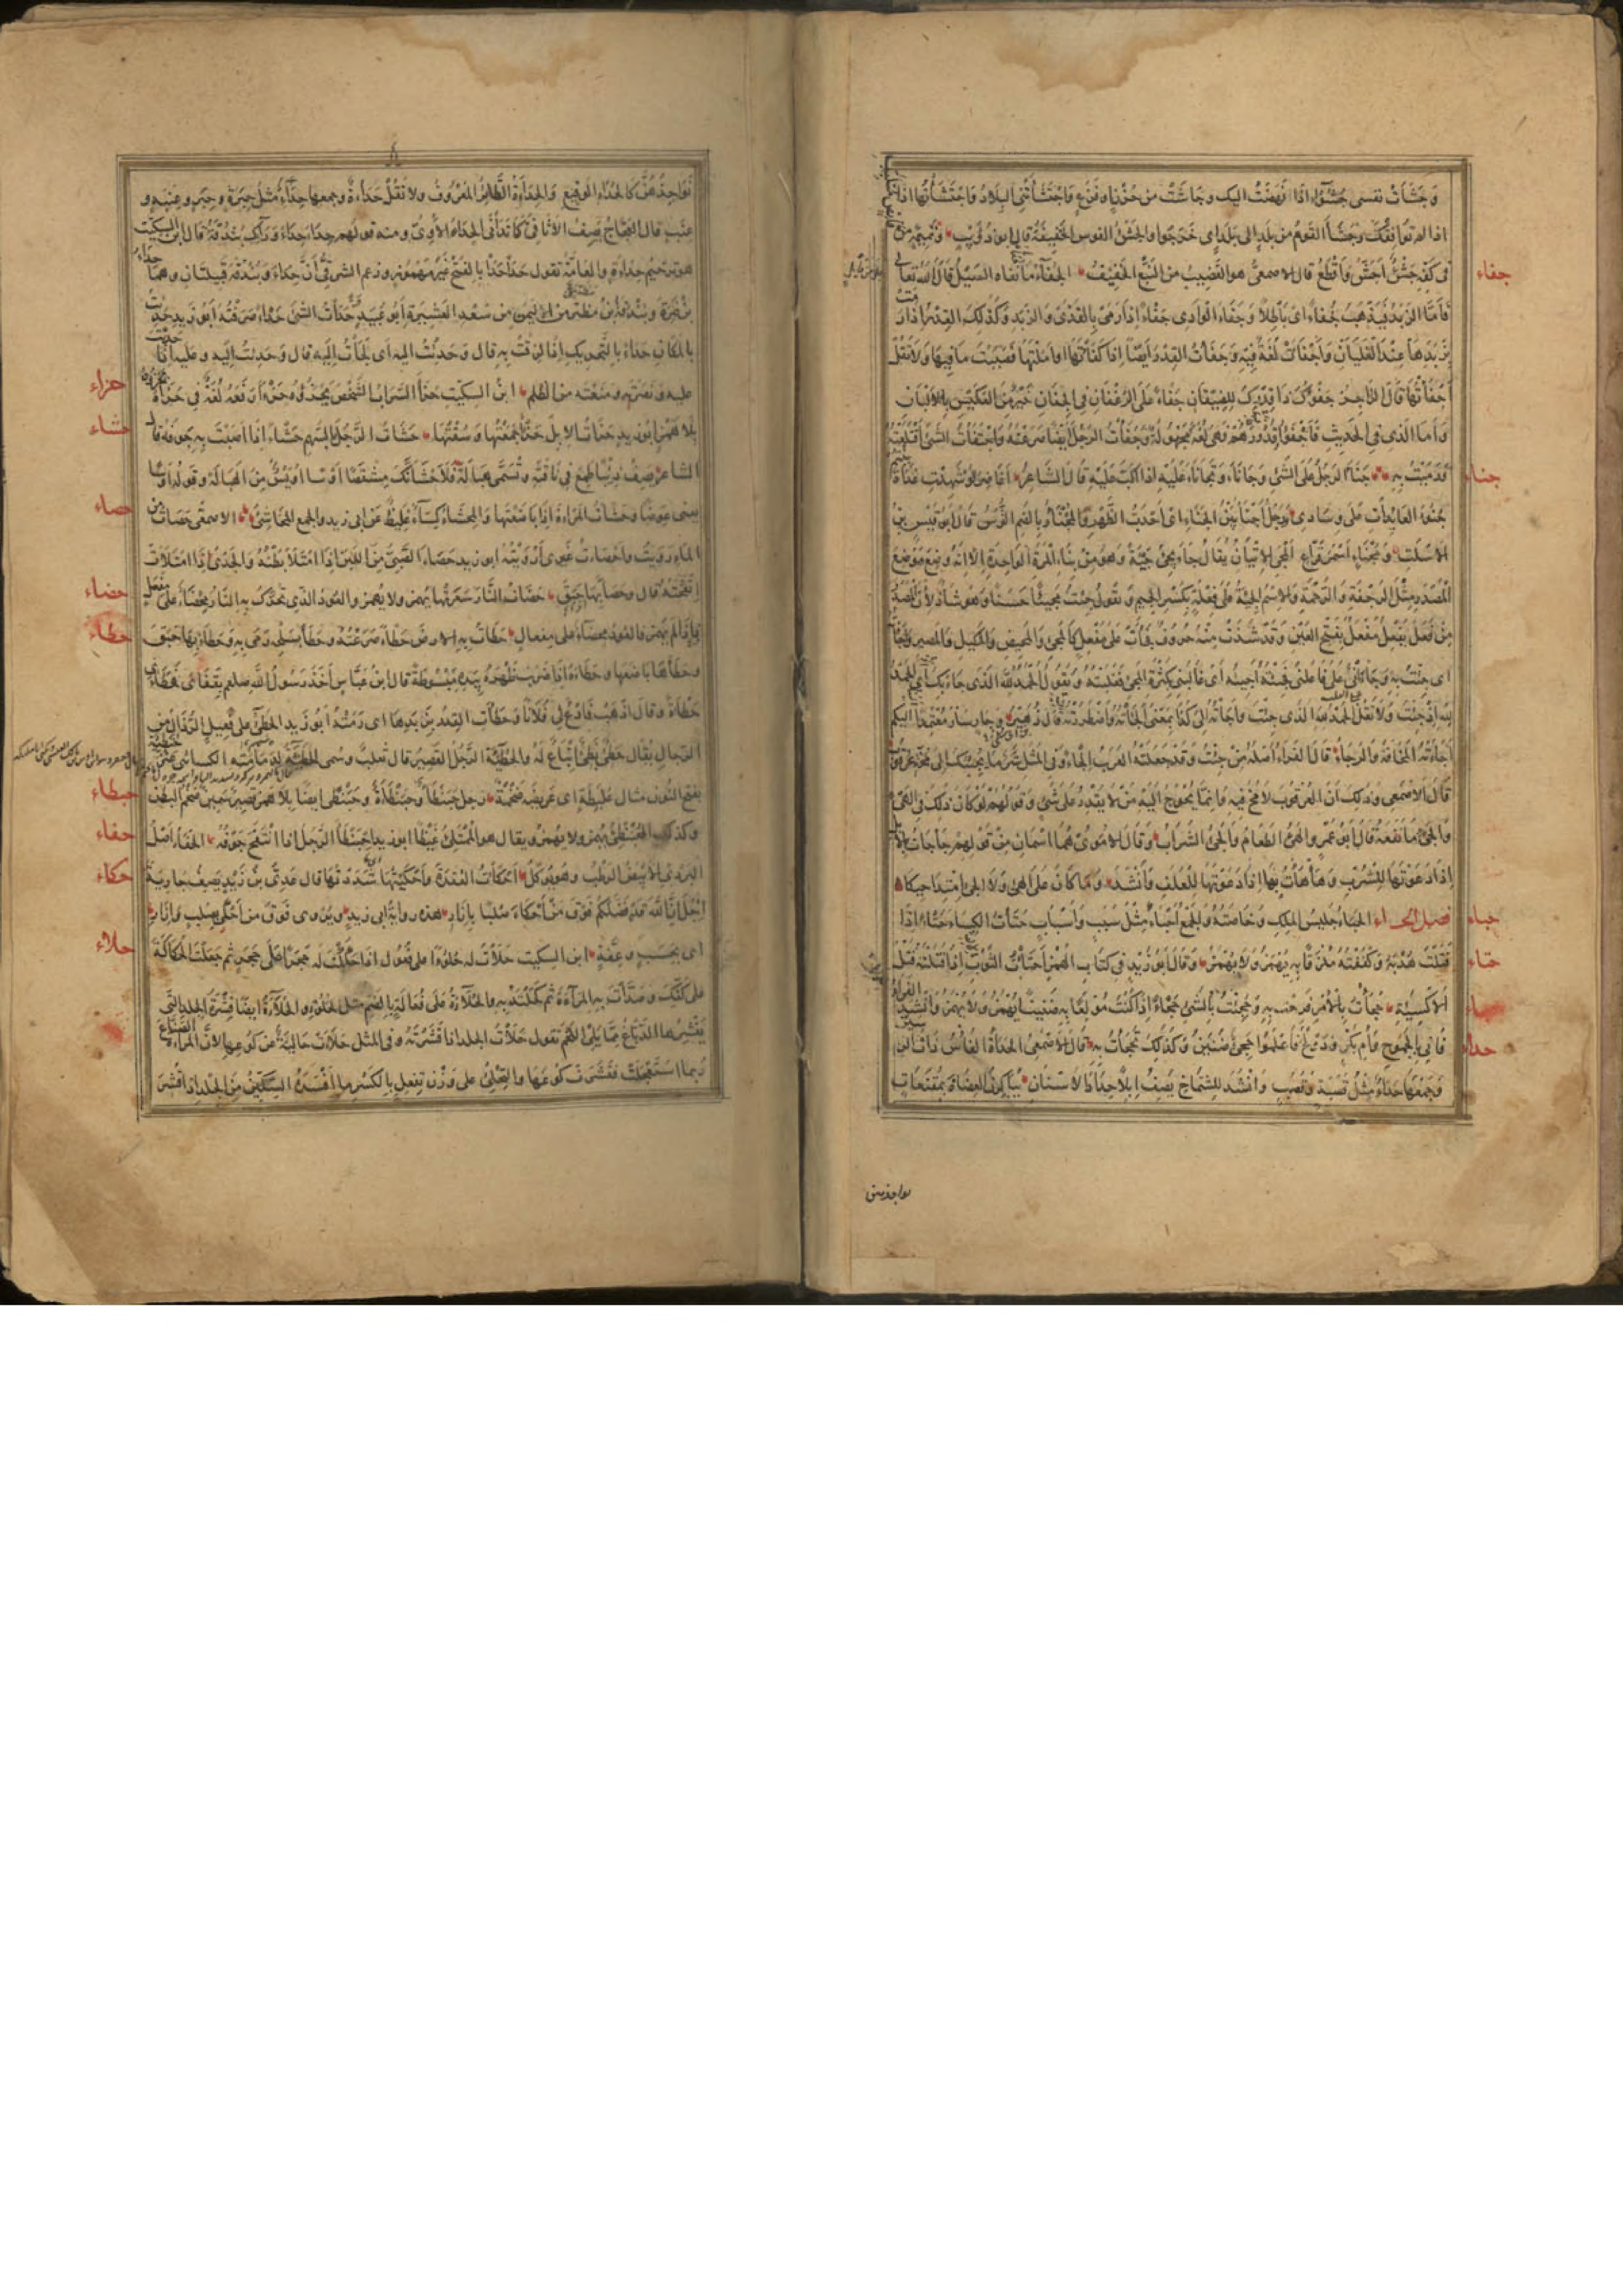 وَجَشَأَتْ نفسى جُشُوءًا اذا نَهَضَتْ اليك وجاشَتْ من حُزْنٍ او فَزَعٍ وَاجْتَشَأَتْنِى البِلَادُ وَاجْتَشَأْتُها اذا
اذا لم توافِقْكَ وَجَشَأَ القَومُ من بلدٍ الى بلدٍ اى خَرَجُوا والجَشْءُ القوس الخفيفَةُ قال ابو ذُوَيْبٍ وَنَمِيمَةً من
فى كَفِّهِ جَشْءٌ اَجَشُّ وَاَقْطُعُ قال الاصمعىُّ هو القَضِيبُ من النَّبْعِ الخَفِيفُ الجُفَاءُ مَا نَفَاهُ السَّيْلُ قالَ اللهُ تعالى
جفاء
فَاَمَّا الزَّبَدُ فَيَذْهَبُ جُفَاءً اى بَاطِلًا وَجَفَأَ الوَادِى جَفْاءً اِذَا رَمَى بِالقَذَى وَالزَّبَدِ وَكَذلِكَ القِدْرُ اِذَا رَمَتْ
بِزَبَدِهَا عِنْدَ الغَلَيَانِ وَاَجْفَأَتْ لُغَةٌ فِيْهِ وَجَفَأْتُ القِدْرَ اَيْضًا اِذَا كَفَأْتَهَا او اَمَلْتَهَا فَصَبَبْتَ مَا فِيهَا وَلَا تَقُلْ
اَجْفَأْتُهَا قَالَ الرَّاجِزُ جَفْؤُكَ ذَا قِدْرِكَ لِلضِّيْفَانِ جَفْاءً عَلَى الرُّغْفَانِ فِى الجِفَانِ خَيْرٌ مِنَ العَكِيْسِ بِالاَلْبَانِ
وَأَمَا الَّذى فى الحَدِيثِ فَاَجْفَؤُا قُدُوْرَهُمْ فَهِىَ لُغَةٌ مَجْهُولَةٌ وَجَفَأْتُ الرَّجُلَ اَيْضًا صَرَعْتُهُ وَاجْتَفَأْتُ الشَّىْءَ اقْتَلَعْتُهُ
وَرَمَيْتُ بِهِ جَنَأَ الرَّجُلُ عَلَى الشَّىْءِ وَجَانَأَ وَتَجَانَأَ عَلَيْهِ اذا اَكَبَّ عَلَيْهِ قَالَ الشَّاعِرُ اَغَاضِرَ لَوْ شَهِدْتِ غَدَاةَ
جناء
جُنُوءَ العَائِدَاتِ عَلَى وِسَادِى وَرَجُلٌ اَجْنَأُ بَيِّنُ الجَنَاءِ اى اَحْدَبُ الظَّهْرِ وَالمُجْنَأُ بِالضَّمِ التُّرْسُ قَالَ ابُو قَيْسِ بْنِ
الاَسْلَتِ وَمُجْنَاءٍ اَسْمَرَ قَرَّاعِ المَجِىْءُ الاِتْيَانُ يُقَالُ جَاءَ يَجِىْءُ جَيْئَةً وَهُوَ مِنْ بِنَاءِ المَرَّةِ الوَاحِدَةِ اِلَّا اَنَّهُ وُضِعَ مَوْضِعَ
المَصْدَرِ مِثْلَ الرَّجْفَةِ وَالرَّحْمَةِ وَالاِسْمُ الجِيْئَةُ عَلَى فِعْلَةٍ بِكَسْرِ الجِيمِ وَتَقُولُ جِئْتُ مَجِيْئًا حَسَنًا وَهُوَ شَاذٌّ لِاَنَّ المَصْدَرَ
مِنْ فَعَلَ يَفْعِلُ مَفْعَلٌ بِفَتْحِ العَيْنِ وَقَدْ شَذَّتْ مِنْهُ حُرُوفٌ فَجَاءَتْ عَلَى مَفْعِلٍ كَالمَجِىْءِ وَالمَحِيضِ وَالمَكِيلِ وَالمَصِيرِ
اى جِئْتُ بِهِ وَجَاءَانِى عَلَى فَاعَلَنِى فَجِئْتُهُ اَجِيْئُهُ اَىْ غَالَبَنِى بِكَثْرَةِ المَجِىْءِ فَغَلَبْتُهُ وَتَقُولُ الحَمْدُ لِلّٰهِ الَّذِى جَاءَ بِكَ
لِلّٰهِ اِذْ جِئْتَ وَلَا تَقُلْ الحَمْدُ لِلّٰهِ الَّذِى جِئْتَ وَاَجَأْتُهُ اِلَى كَذَا بِمَعْنَى اَلْجَأْتُهُ وَاضْطَرَرْتُهُ قَالَ زُهَيْرٌ وَجَارٍ سَارَ مُعْتَمِدًا اِلَيْكُم
اَجَاءَتْهُ المَخَافَةُ وَالرَّجَاءُ قَالَ الفَرَّاءُ اَصْلُهُ مِنْ جِئْتُ وَقَدْ جَعَلَتْهُ العَرَبُ اِلْجَاءً وَفِى المَثَلِ شَرٌّ مَا يُجِيْئُكَ اِلَى مُخَّةِ عُرْقُوبٍ
قَالَ الاَصْمَعِى وَذلِكَ اَنَّ العُرْقُوبَ لَا مُخَّ فِيهِ وَاِنَّمَا يُحْوَجُ اِلَيْهِ مَنْ لَا يَقْدِرُ عَلَى شَىْءٍ وَقَوْلُهُمْ لَوْ كَانَ ذلِكَ فِى الهِىْءِ
وَالجِىْءِ مَا نَفَعَهُ قَالَ اَبُو عَمْرٍو الهِىْءُ الطَّعَامُ وَالجِىْءُ الشَّرَابُ وَقَالَ الاُمَوِىُّ هُمَا اسْمَانِ مِنْ قَوْلِهِمْ جَأْجَأْتُ بِالاِبِلِ
اِذَا دَعَوْتَهَا لِلشُّرْبِ وَهَأْهَأْتُ بِهَا اِذَا دَعَوْتَهَا لِلْعَلَفِ وَاَنْشَدَ وَمَا كَانَ عَلَى الهِىْءِ وَلَا الجِىْءِ امْتِدَاحِيكَا
فصل الحاء الحَبَأُ جَلِيسُ المَلِكِ وَخَاصَّتُهُ وَالجَمْعُ اَحْبَاءٌ مِثْلُ سَبَبٍ وَاَسْبَابٍ حَتَأْتُ الكِسَاءَ حَتْاءً اِذَا
حباء
فَتَلْتَ هُدْبَهُ وَكَفَفْتَهُ مُلْزَقًا بِهِ يُهْمَزُ وَلَا يُهْمَزُ وَقَالَ اَبُو زَيْدٍ فِى كِتَابِ الهَمْزِ اَحْتَأْتُ الثَّوْبَ اِذَا فَتَلْتَهُ فَتْلَ
حتاء
الاَكْسِيَةِ حَجِأْتُ بِالاَمْرِ فَرِحْتُ بِهِ وَحَجِئْتُ بِالشَّىْءِ حَجَاءً اِذَا كُنْتَ مُوْلَعًا بِهِ ضَنِيْنًا يُهْمَزُ وَلَا يُهْمَزُ وَاَنْشَدَ الفراء
فَاِنِّى بِالجَمُوحِ وَاُمِّ بَكْرٍ وَدَوْلَحَ فَاعْلَمُوا حَجِىءٌ ضَنِيْنُ وَكَذلِكَ تَحَجَّأْتُ بِهِ قَالَ الاَصْمَعِىُّ الحَدَأَةُ الفَأْسُ ذَاتُ
حداء
وَجَمْعُهَا حَدَاءٌ مِثْلُ قَصَبَةٍ وَقَصَبٍ وَاَنْشَدَ لِلشَّمَّاخِ يَصِفُ اِبِلًا حِدَادَ الاَسْنَانِ يُبَاكِرْنَ العِضَاهَ بِمُقْنَعَاتٍ
نواجذهن
نَوَاجِذُهُنَّ كَالحَدَاءِ الوَقِيعِ وَالحِدَأَةُ الطَّائِرُ المَعْرُوفُ ولا تَقُلْ حَدَاءَةٌ وجمعها حِدَاءٌ مثلُ حِبَرَةٍ وحِبَرٍ وعِنَبَةٍ و
عِنَبٍ قال العَجَّاجُ يَصِفُ الاَثَافِىَّ كَمَا تَدَانَى الحِدَأُ الاُوِىُّ ومنه قولهم حِدَأَ حِدَأَ وَرَاءَكِ بُنْدُقَةُ قال ابن السكيت
هو ترخيم حِدَأَةٍ والعامَّةُ تقول حَدَا حَدَا بالفتح غَيْرَ مَهْمُوزٍ وزعم الشرقىُّ اَنَّ حِدَاءَ وَبُنْدُقَةَ قَبِيلَتَانِ وهما
بْنُ نَمِرَةَ وبُنْدُقَةُ بْنُ مَظَّةَ مِنَ اليَمَنِ مِنْ سَعْدِ العَشِيرَةِ اَبُو عُبَيْدٍ حَدَأْتُ الشَّىْءَ حَدْاءً صَرَفْتُهُ اَبُو زَيْدٍ حَدِئْتُ
بِالمَكَانِ حَدَاءً بِالتَّحْرِيكِ اِذَا لَزِقْتُ بِهِ قال وَحَدِئْتُ اليه اى لَجَأْتُ اِلَيْهِ قال وَحَدِئْتُ اِلَيْهِ وعَلَيْهِ اِذَا
عليه وَنَصَرْتَهُ وَمَنَعْتَهُ من الظلم ابن السكيت حَزَأَ السَّرَابُ الشَّخْصَ يَحْزَؤُهُ وَحَزْاً رَفَعَهُ لُغَةٌ فى حَزَاهُ
حزاء
بلا همزٍ ابو زيد حَزَأْتُ الاِبِلَ حَزْاً جَمَعْتُهَا وَسُقْتُهَا حَشَأْتُ الرَّجُلَ بالسَّهمِ حَشْاً اِذَا اَصَبْتَ بِهِ جَوْفَهُ قال
حشاء
الشاعر يَصِفُ ذِئْبًا طَمِعَ فى نَاقَتِهِ وَتُسَمَّى هَبَالَةَ فَلَاَحْشَاَنَّكَ مِشْقَصًا اَوْسًا اُوَيْسُ مِنَ الهَبَالَة وقوله اوسا
يعنى عِوَضًا وحَشَأْتُ المَرْاَةَ اِذَا بَاضَعْتَهَا وَالمِحْشَأُ كِسَاءٌ غَلِيظٌ عن ابى زيد والجمع المَحَاشِئُ الاصمعى حَصَأْتُ من
حصاء
الماءِ رَوِيتُ واَحْصَأْتُ غَيْرِى اَرْوَيْتُهُ ابو زيد حَصَأَ الصَّبِىُّ مِنَ اللَّبَنِ اِذَا امْتَلَأَ بَطْنُهُ والجَدْىُ اِذَا امْتَلَأَتْ
اِنْفَحَتُهُ قال وحَصَأَ بها حَبَقَ حَضَأْتُ النَّارَ سَعَّرْتُهَا يهمز ولا يهمز والعُودُ الذى تُحَرَّكُ به النارُ مِحْضَأٌ على مِفْعَلٍ
حضاء
فَاِذَا لَمْ يُهْمَزْ فالعُودُ مِحْضَاءٌ على مِفْعَالٍ حَطَأْتُ بِهِ الارضَ حَطْاءً صَرَعْتُهُ وحَطَأَ بِسَلْحِهِ رَمَى بِهِ وَحَطَأَ بِهَا حَبَقَ
حطاء
وحَطَأَهَا بَاضَعَهَا وحَطَأَهُ اِذَا ضَرَبَ ظَهْرَهُ بِيَدِهِ مَبْسُوطَةً قال ابنُ عَبَّاسٍ اَخَذَ رَسُولُ اللّٰهِ صلعم بِقَفَاىَ فَحَطَأَنِى
حَطْأَةً وقال اذْهَبْ فَادْعُ لِى فُلَانًا وَحَطَأَتِ القِدْرُ بِزَبَدِهَا اى رَمَتْهُ اَبُو زَيْدٍ الحَطِىءُ على فَعِيلٍ الرُّذَالُ من
الرِّجَالِ يُقَالُ حَطِىءٌ نَطِىءٌ اِتْبَاعٌ لَهُ والحُطَيْئَةُ الرَّجُلُ القَصِيرُ قال ثعلبٌ وسُمِّى الحُطَيْئَةُ لِدَمَامَتِهِ الكسائى
بفتح النون مثال غَلِيظَةٍ اى عَرِيضَة ضَخْمَةٌ رجلٌ حَبَنْطَأٌ وحَبَنْطَأَةٌ وحَبَنْطًى ايضًا بلا همزٍ قَصِيرٌ سَمِينٌ ضَخْمُ البطن
حبطاء
وكذلك المُحْبَنْطِئُ يُهمز ولا يُهمز ويقال هو المُمْتَلِئُ غَيْظًا ابو زيد اِحْبَنْطَأَ الرَّجُلُ اِذَا انْتَفَخَ جَوْفُهُ الحَفَأُ اَصْلُ
حفاء
البَرْدِىِّ الاَبْيَضُ الرَّطْبُ وهو يُؤْكَلُ اَحْكَأْتُ العُقْدَةَ وَاَحْكَيْتُهَا شَدَدْتُهَا قال عَدِىُّ بْنُ زَيْدٍ يَصِفُ جارية
حكاء
اِجْلَ اَنَّ اللّٰهَ قَدْ فَضَّلَكُمْ فَوْقَ مَنْ اَحْكَأَ صُلْبًا بِاِزَار هذه رواية ابى زيدٍ ويُرْوى فوق من اَحْكِى بِصُلْبٍ وَاِزَارٍ
اى بِحَسَبٍ وعِفَّةٍ ابن السكيت حَلَأْتُ لَهُ حَلُوءًا على فَعُولٍ اذا حَكَكْتَ لَهُ حَجَرًا عَلَى حَجَرٍ ثم جَعَلْتَ الحُكَاكَةَ
حلاء
على كَفِّكَ وصَدَّأْتَ بِهِ المِرْآةَ ثُمَّ كَحَلْتَهُ بِهِ والحُلَاءَةُ عَلَى فُعَالَةٍ بِالضَّمِ مثل الحَلُوءِ والحُلَاءَةُ ايضًا قِشْرَةُ الجِلدِ الَّتِى
يَقْشِرُهَا الدَّبَّاغُ مِمَّا يَلِى اللَّحْمَ تقول حَلَأْتُ الجِلْدَ اذا قَشَرْتَهُ وفى المَثَل حَلَأَتْ حَالِئَةٌ عَنْ كُوعِهَا لِاَنَّ المَرْاَةَ الصَّنَاعَ
رُبَّمَا اسْتَعْجَلَتْ فَقَشَرَتْ كُوعَهَا والتِّحْلِئُ على وَزْنِ تِفْعِلٍ بِالكَسْرِ مَا اَفْسَدَهُ السِّكِّينُ مِنَ الجِلْدِ اذا قُشِرَ